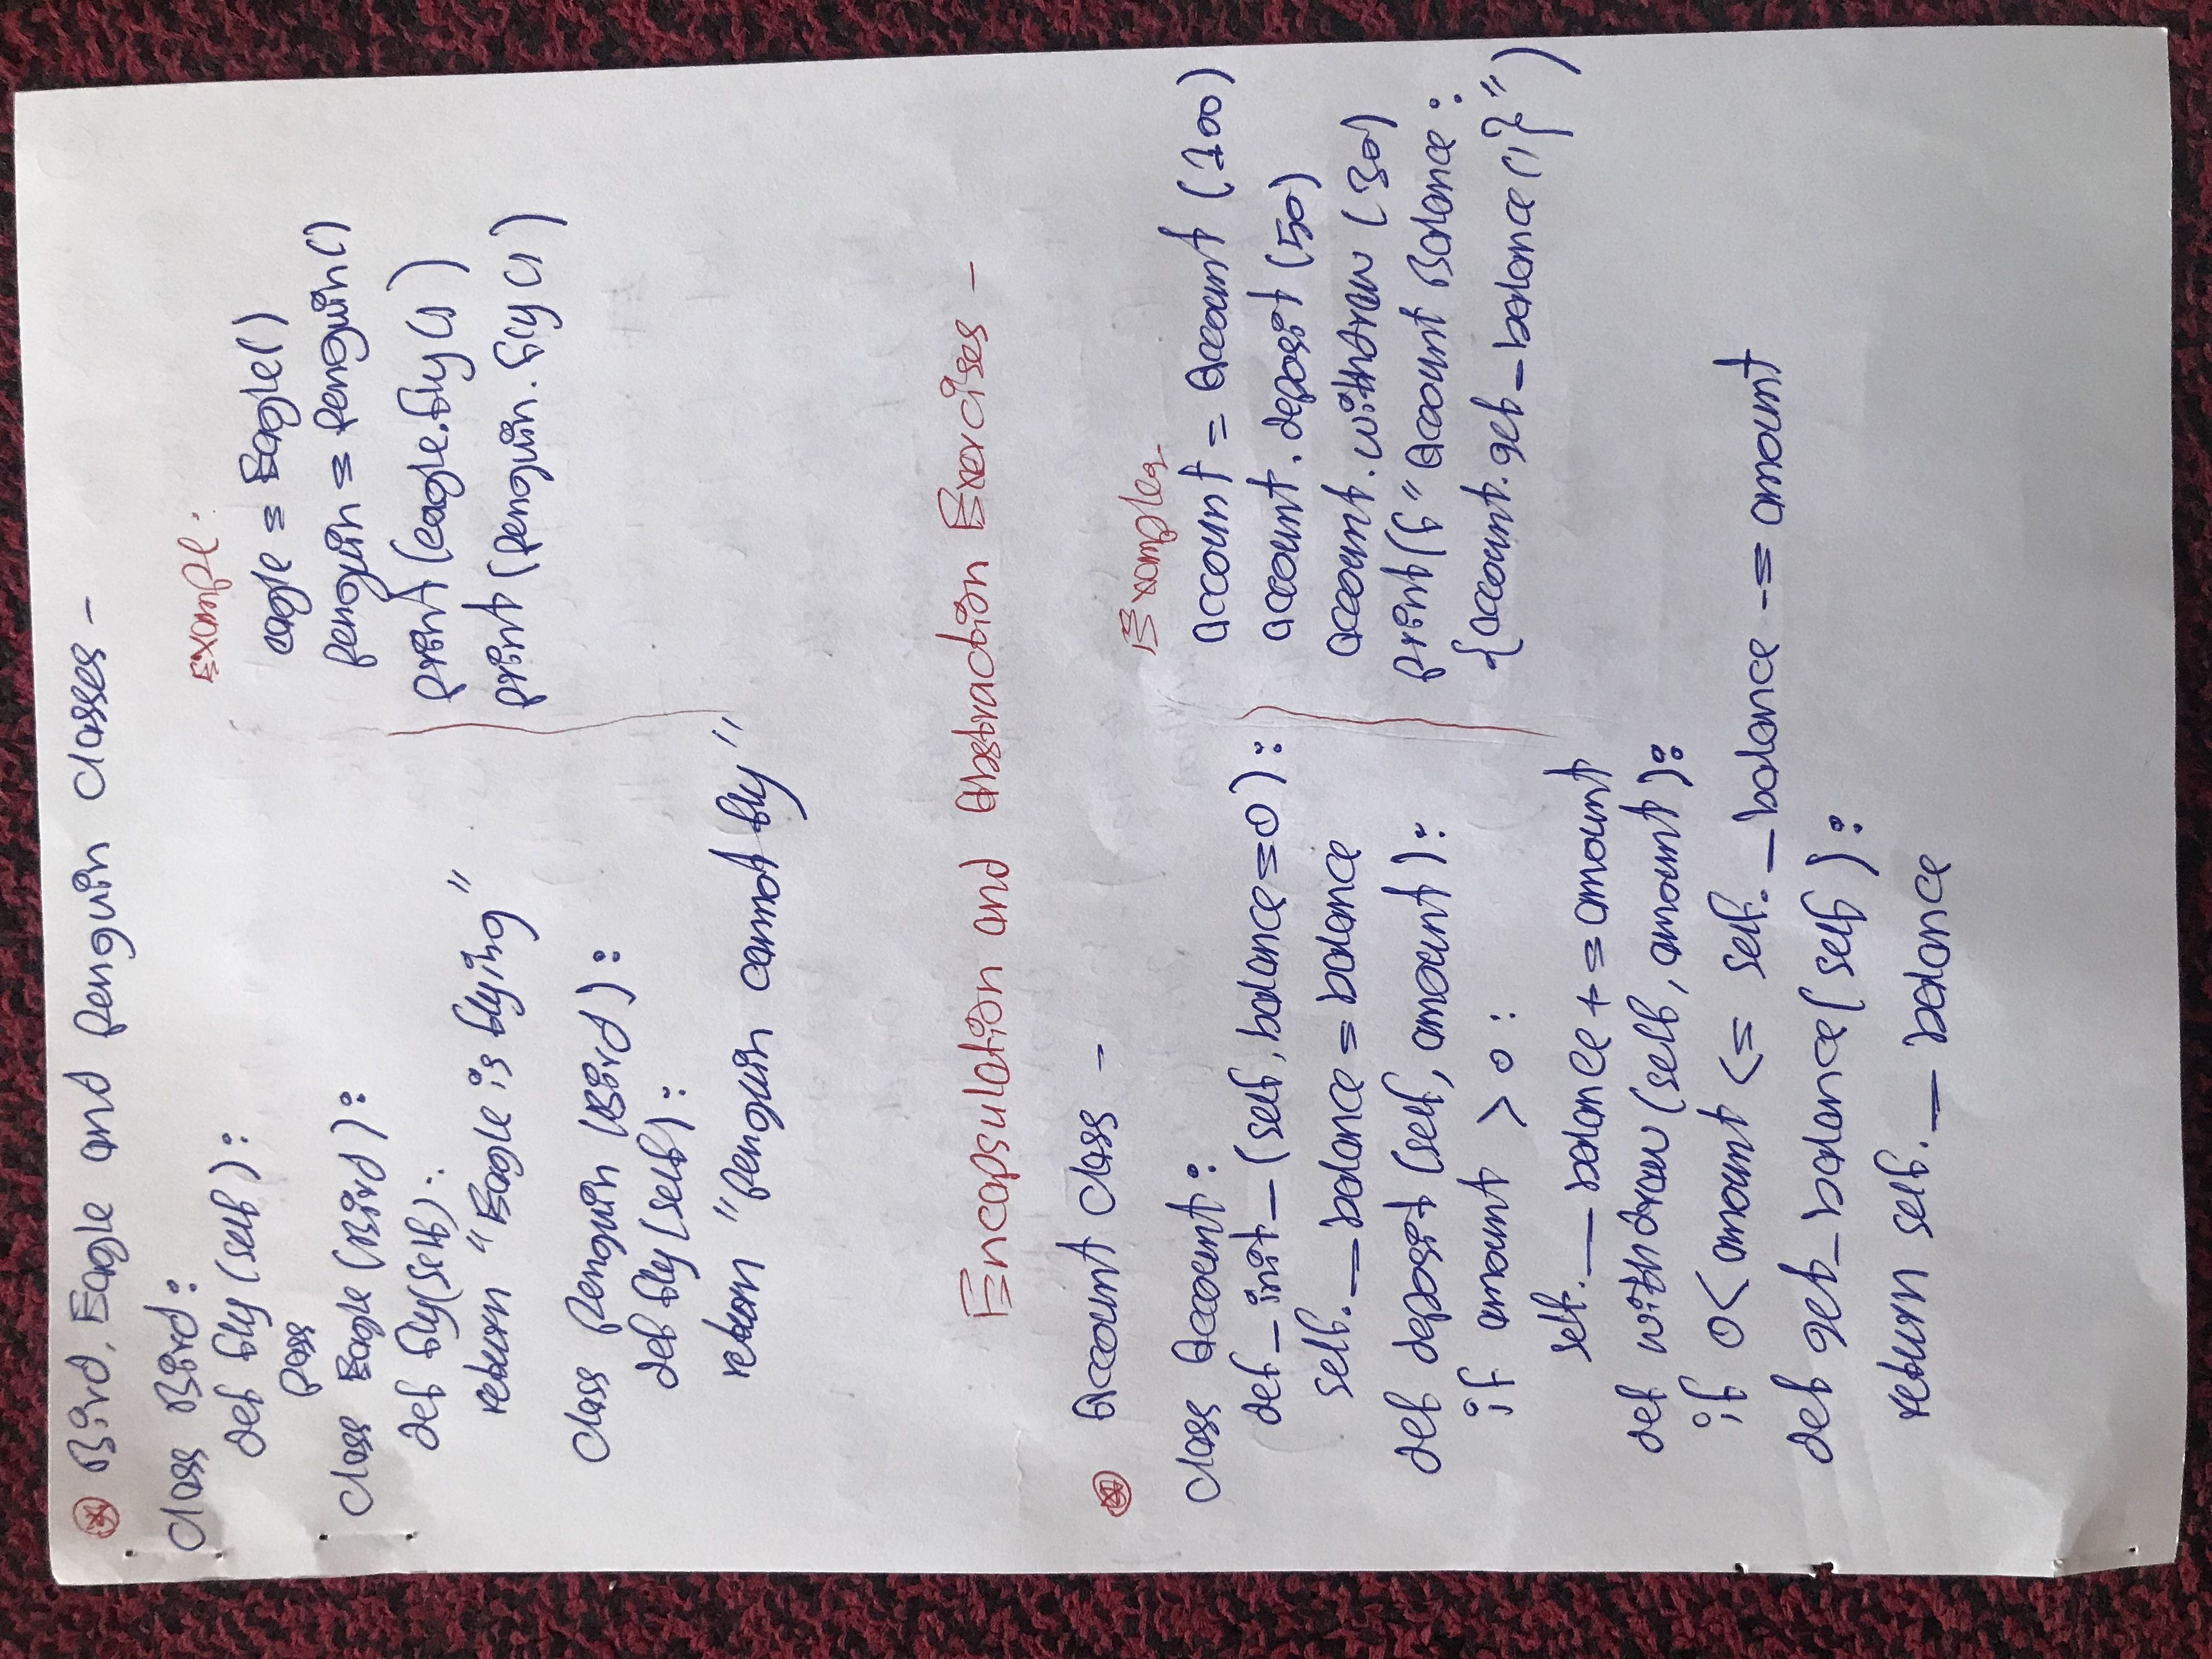 Bird, Eagle and Penguin Classes -
class Bird:
def fly (self):
pass
class Eagle (Bird):
def fly(self):
return "Eagle is flying"
class Penguin (Bird):
def fly (self):
return "Penguin cannot fly"
Example:
eagle = Eagle()
penguin = Penguin()
print (eagle.fly()
print (penguin.fly()
Encapsulation and Abstraction Exercises -
Account Class -
class Account:
def _init_ (self, balance=0):
self.__balance = balance
def deposit (self, amount):
if amount > 0:
self.__balance += amount
def withdraw (self, amount):
if 0 < amount <= self._balance -= amount
def get_balance(self):
return self.__balance
Examples
account = Account (100)
account.deposit (50)
account.withdraw (30)
print(f"Account Balance:
{account.get_balance()}")